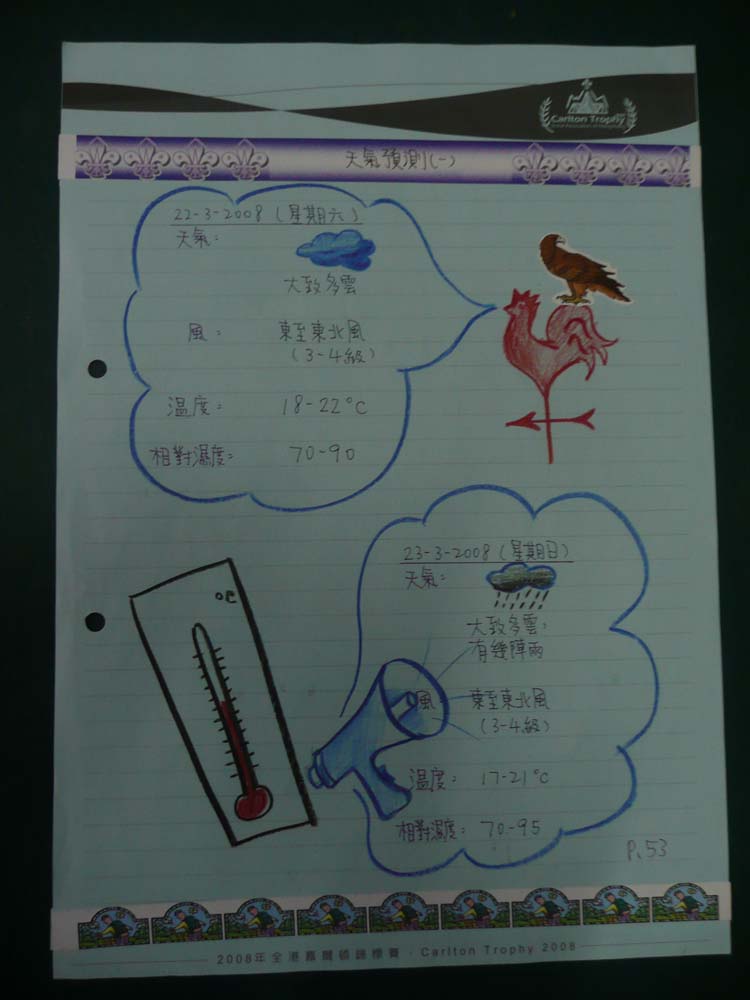 Carlton Trophy
天氣預測(一)
22-3-2008 (星期六)
天氣:
大致多雲
風: 東至東北風
(3-4級)
溫度: 18-22°C
相對濕度: 70-90
23-3-2008 (星期日)
天氣:
大致多雲:
有幾陣雨
風: 東至東北風
(3-4級)
溫度: 17-21°C
相對濕度: 70-95
°C
P.53
2008年全港嘉爾頓錦標賽 · Carlton Trophy 2008